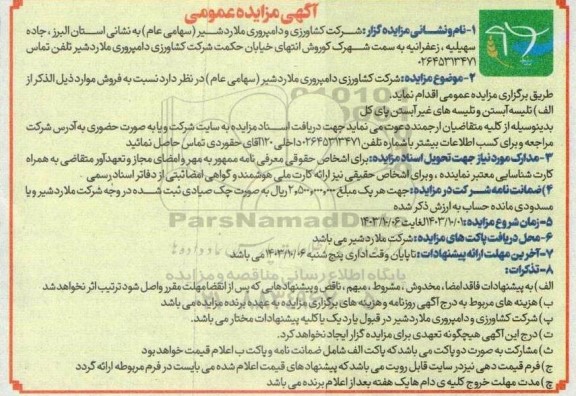 آگهی مزایده عمومی
۱-نام ونشانی مزایده گزار: شرکت کشاورزی و دامپروری ملاردشیر (سهامی عام) به نشانی استان البرز، جاده
سهیلیه، زعفرانیه به سمت شهرک کوروش انتهای خیابان حکمت شرکت کشاورزی دامپروری ملاردشیر تلفن تماس
۰۲۶۴۵۳۱۳۴۷۱
۲-موضوع مزایده: شرکت کشاورزی دامپروری ملاردشیر (سهامی عام) در نظر دارد نسبت به فروش موارد ذیل الذکر از
طریق برگزاری مزایده عمومی اقدام نماید.
الف) تلیسه آبستن و تلیسه های غیر آبستن پای کل
بدینوسیله از کلیه متقاضیان ارجمند دعوت می نماید جهت دریافت اسناد مزایده به سایت شرکت و یا به صورت حضوری به آدرس شرکت
مراجعه و برای کسب اطلاعات بیشتر با شماره تلفن ۰۲۶۴۵۳۱۳۴۷۱ داخلی ۱۲۰ آقای حقوردی تماس حاصل نمائید
۳-مدارک مورد نیاز جهت تحویل اسناد مزایده: برای اشخاص حقوقی معرفی نامه ممهور به مهر و امضای مجاز و تعهدآور متقاضی به همراه
کارت شناسایی معتبر نماینده، و برای اشخاص حقیقی نیز ارائه کارت ملی هوشمند و گواهی امضا ثبتی از دفاتر اسناد رسمی
۴) ضمانت نامه شرکت در مزایده: جهت هر یک مبلغ ۲،۵۰۰،۰۰۰،۰۰۰ ریال به صورت چک صیادی ثبت شده در وجه شرکت ملاردشیر و یا
مسدودی مانده حساب به ارزش ذکر شده
۵-زمان شروع مزایده: ۱۴۰۳/۱۰/۰۱ لغایت ۱۴۰۳/۱۰/۰۶
۶-محل دریافت پاکت های مزایده: شرکت ملاردشیر می باشد
۷-آخرین مهلت ارائه پیشنهادات: تا پایان وقت اداری پنج شنبه ۱۴۰۳/۱۰/۰۶ می باشد
۸-تذکرات:
الف) به پیشنهادات فاقد امضا، مخدوش، مشروط، مبهم، ناقص و پیشنهادهایی که پس از انقضا مهلت مقرر واصل شود ترتیب اثر نخواهد شد
ب) هزینه های مربوط به درج آگهی روزنامه و هزینه های برگزاری مزایده به عهده برنده مزایده می باشد
پ) شرکت کشاورزی و دامپروری ملاردشیر در قبول یا رد یک یا کلیه پیشنهادات مختار می باشد.
ت) درج این آگهی هیچگونه تعهدی برای مزایده گزار ایجاد نخواهد کرد.
ث) مشارکت به صورت دو پاکت می باشد که پاکت الف شامل ضمانت نامه و پاکت ب اعلام قیمت خواهد بود
ج) فرم قیمت دهی نیز در سایت قابل رویت می باشد که پیشنهاد های قیمت اعلام شده می بایست در فرم مربوطه ارائه گردد
چ) مدت مهلت خروج کلیه ی دام ها یک هفته بعد از اعلام برنده می باشد
ParsNamadData
پایگاه اطلاع رسانی مناقصه و مزایده